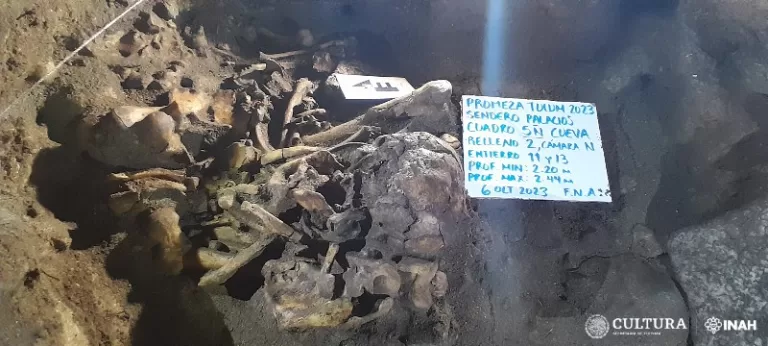 PROMEZA TULUM 2023
SENDERO PALACIOS
CUADRO 5Ñ CUEVA
RELLENO 2, CÁMARA N
ENTIERRO 11 y 13
PROF MIN: 2.20 m
PROF MAX: 2.44 m
6 OCT 2023 F.N.A.
CULTURA
SECRETARÍA DE CULTURA
INAH